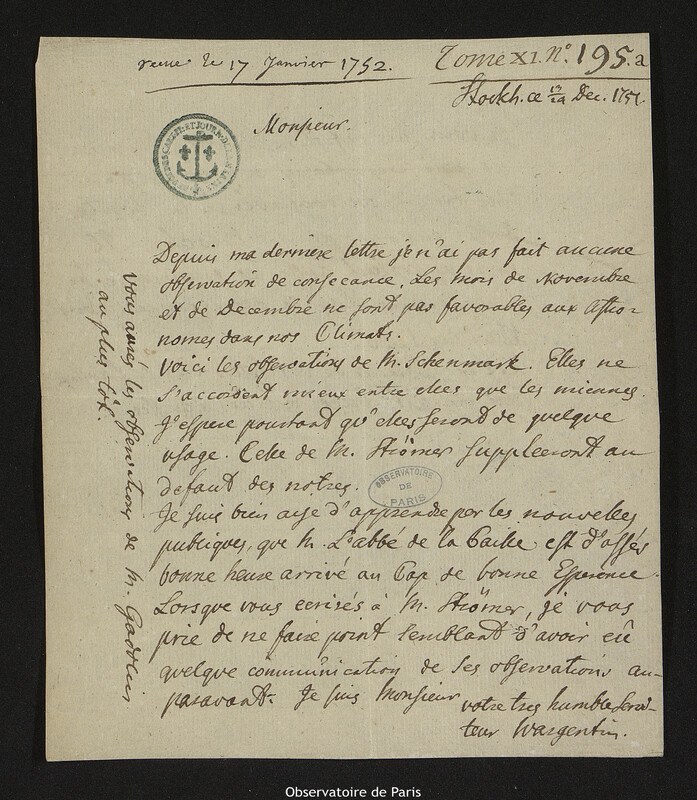 reçue le 17 Janvier 1752.
Tome XI. N.° 195.a
Stockh. ce 13/24 Dec. 1751.
Monsieur.
Depuis ma derniere lettre je n'ai pas fait aucune
observation de consecance. Les mois de Novembre
et de Decembre ne sont pas favorables aux Astro-
nomes dans nos Climats.
Voici les observations de M. Schenmark. Elles ne
s'accordent mieux entre elles que les miennes.
J'espere pourtant qu'elles seront de quelque
usage. Celle de M. Strömer suppleeront au
defaut des notres.
Je suis bien aise d'apprendre per les nouvelles
publiques, que M. L'abbé de la Caille est d'assés
bonne heure arrivé au Cap de bonne Esperence.
Lorsque vous ecrisés à M. Strömer, je vous
prie de ne faire point semblant d'avoir eû
quelque communication de ses observations au-
paravant. Je suis Monsieur
votre tres humble Servi-
teur Wargentin.
Vous aurés les observations de M. Gadolin
au plus tôt.
OBSERVATOIRE
DE
PARIS
Observatoire de Paris